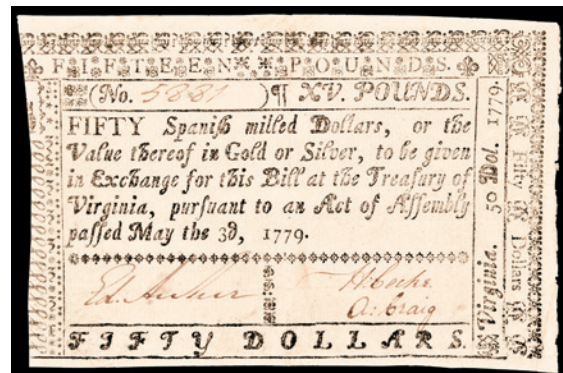 FIFTEEN POUNDS.
(No. 5881 )¶ XV. POUNDS.
FIFTY Spaniſh milled Dollars, or the
Value thereof in Gold or Silver, to be given
in Exchange for this Bill at the Treaſury of
Virginia, purſuant to an Act of Aſſembly
paſſed May the 3d, 1779.
Ed. Archer
H: Cocke.
A: Craig
FIFTY DOLLARS.
Virginia. 50 Dol. 1779.
Fifty Dollars